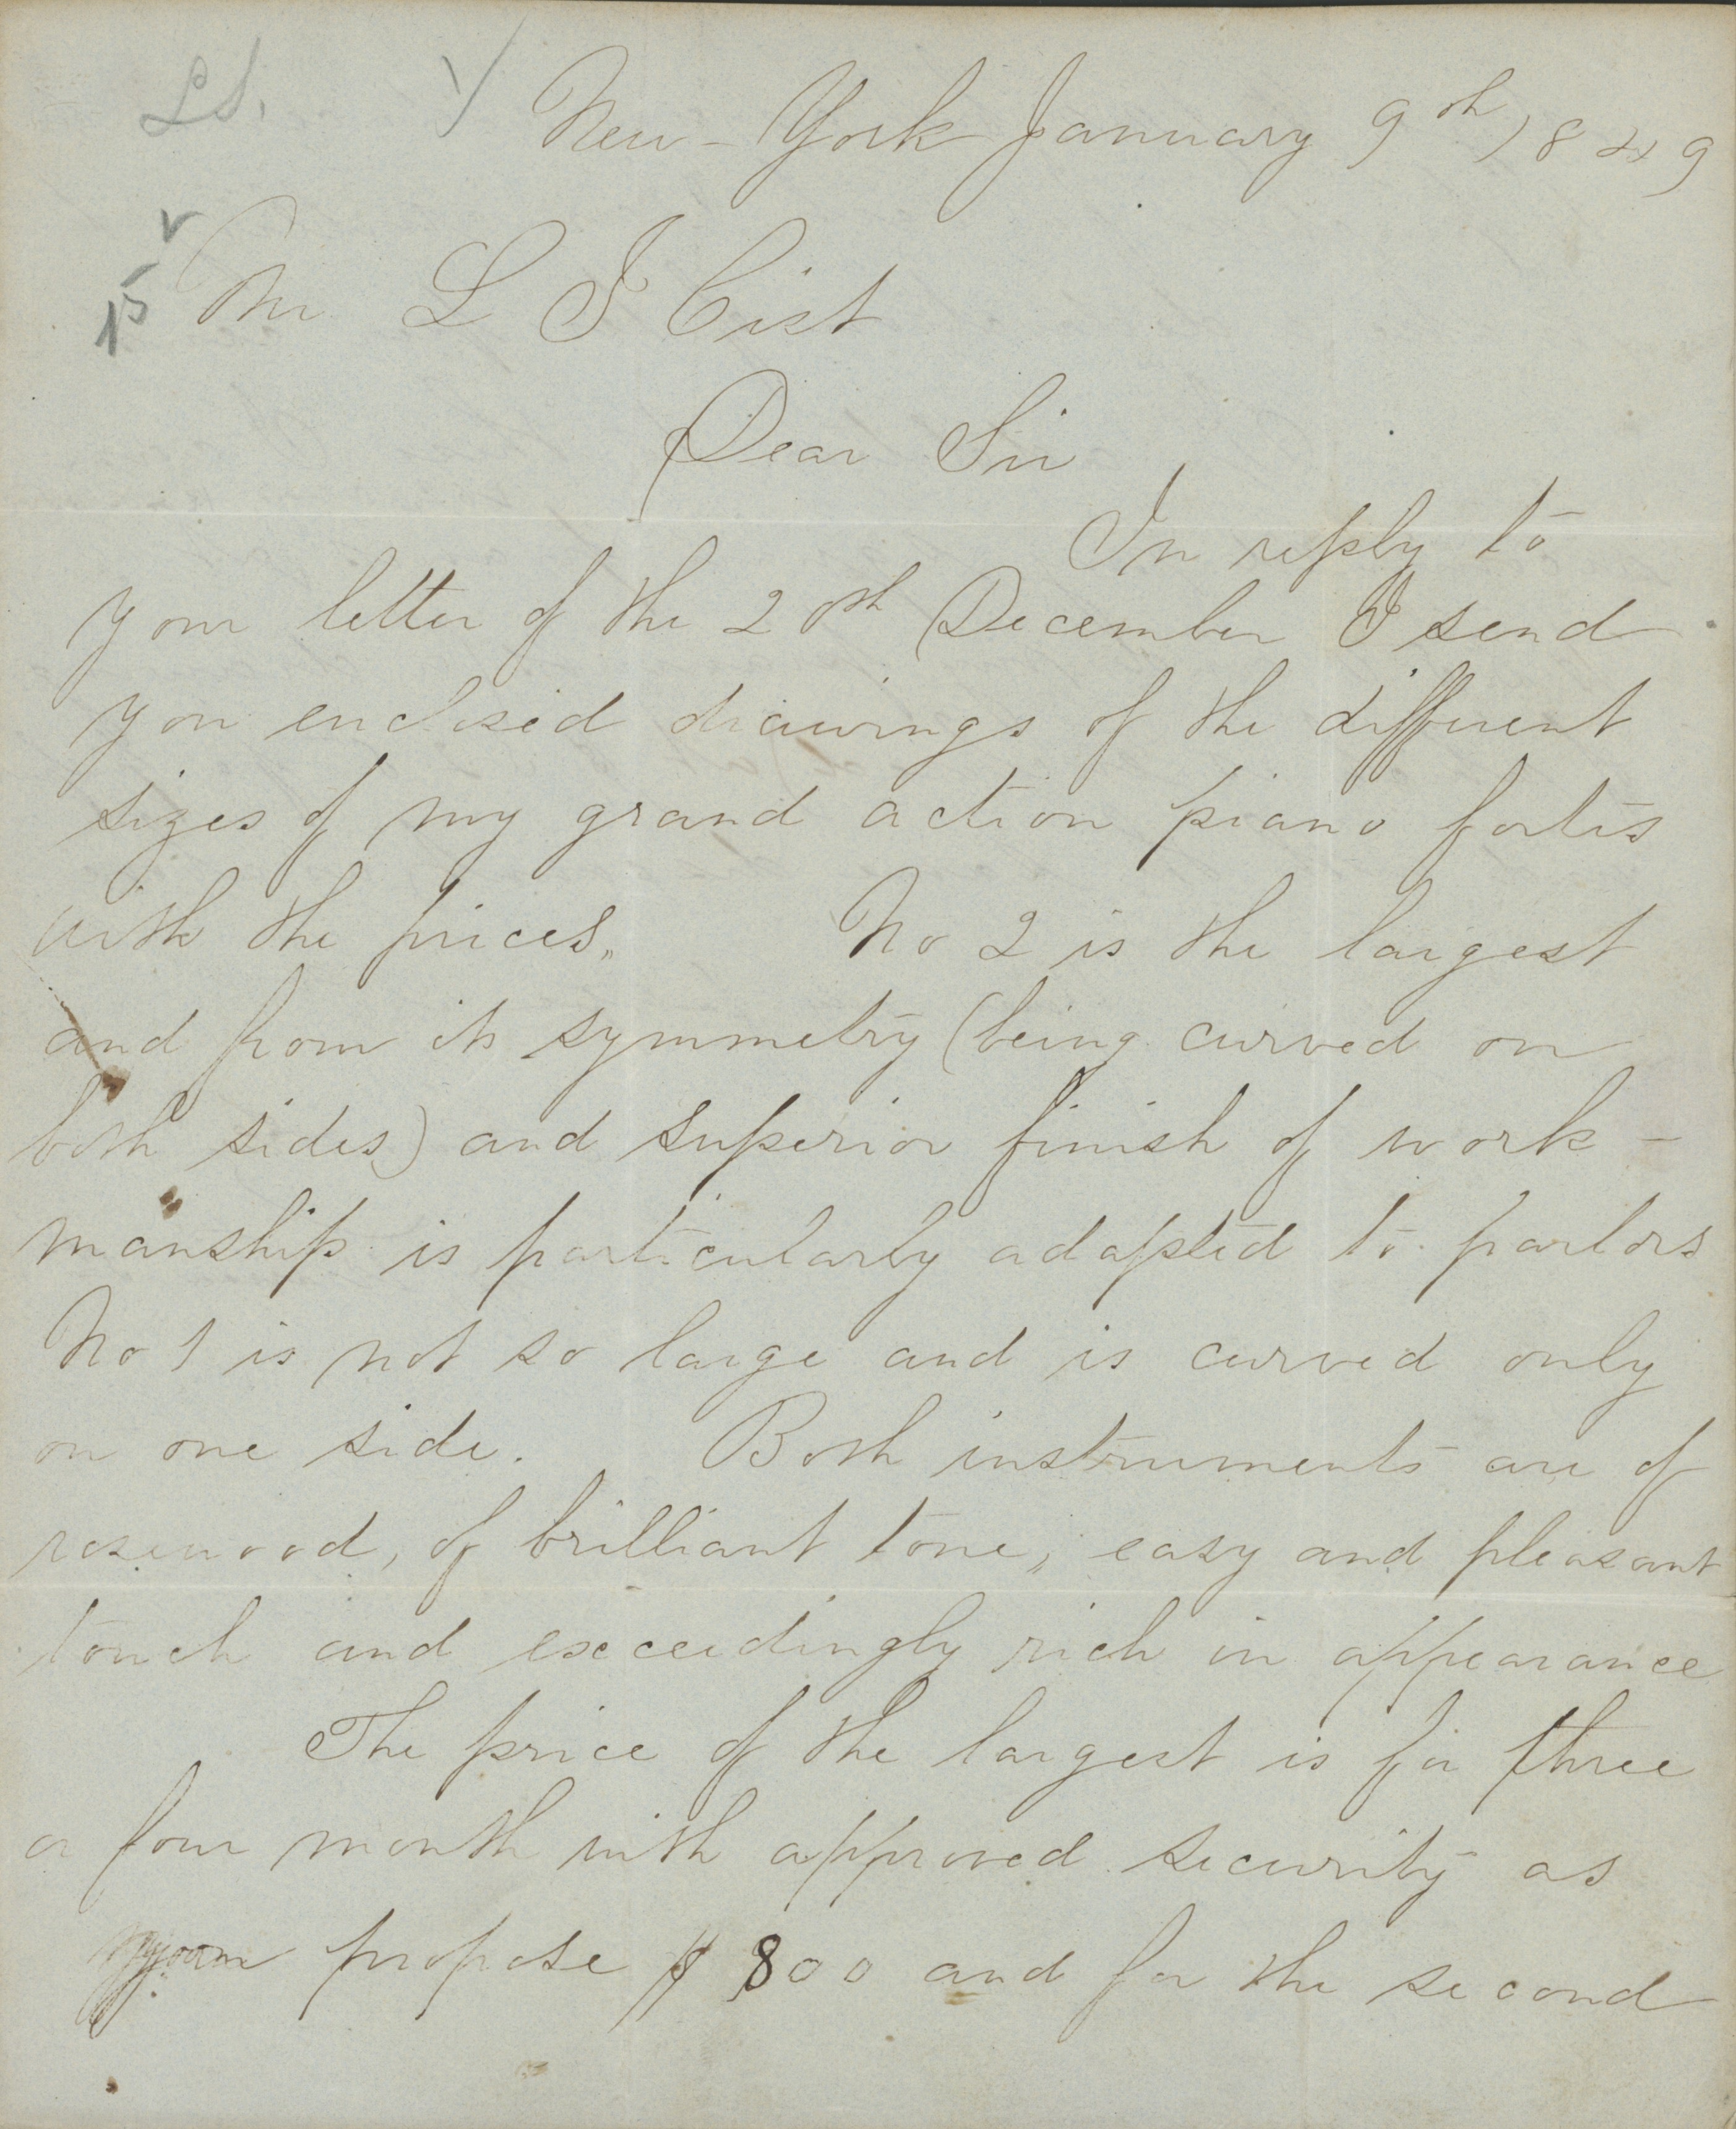 LS.
New-York January 9th 1849
Mr L J Cist
Dear Sir
In reply to
your letter of the 20th December I send
you enclosed drawings of the different
sizes of my grand action piano fortes
with the prices. No 2 is the largest
and from its symmetry (being curved on
both sides) and superior finish of work-
manship is particularly adapted to parlors
No 1 is not so large and is curved only
on one side. Both instruments are of
rosewood, of brilliant tone, easy and pleasant
touch and exceedingly rich in appearance
The price of the largest is for three
or four month with approved security as
you propose $ 800 and for the second